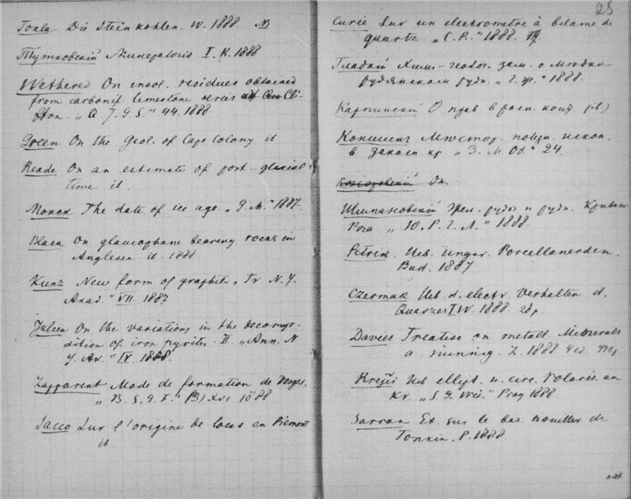 Toula Die Steinkohlen. W. 1888
Тутковский I. K. 1888
Wethered On insol. residues obtained
from carbonif. limestone series at Cli-
fton. „Q. J. G. S." 44. 1888
Green On the Geol. of Cape Colony it
Reade On an estimate of post-glacial
time it.
The date of ice age „G. M." 1887.
Blake On glaucophane bearing rocks in
Anglesea it. 1888
Kunz New form of graphit „Tr N. Y.
Acad." VII. 1887
Julien On the variations in the decompo-
sition of iron pyrites. II. „Ann. N
Y. Ac." IV 1888.
Lapparent Mode de formation de Vosges.
„B. S. G. F." (3) XVI 1888
Sacco Sur l'origine de loess en Piemont
it.
28
Curie Sur un electrometre à bilame de
quartz „C. R." 1888.
Гладкий геол. зам. о Медно-
рудянском рудн. „Г. Ж." 1888.
Карпинский О прав
Коншин
в закасп. кр „З. М. Об." 24.
Шимановский Жел. руды рудн. Кривого
Рога „Ю. Р. Г. Л." 1888.
Petrik Ueb. Ungar. Porcellanerden.
Bud. 1887
Czermak Ueb. d. electr. Verhalten d.
Quarzes I W. 1888.
Davies Treatise on metall Minerals
a. mining. L. 1888 4 ed.
Ueb ellipt. u. circ. Polaris. an
Kr. „S. G. Wis." Prag 1888
Sarran Et. sur le bas. houiller de
Tonkin. P. 1888